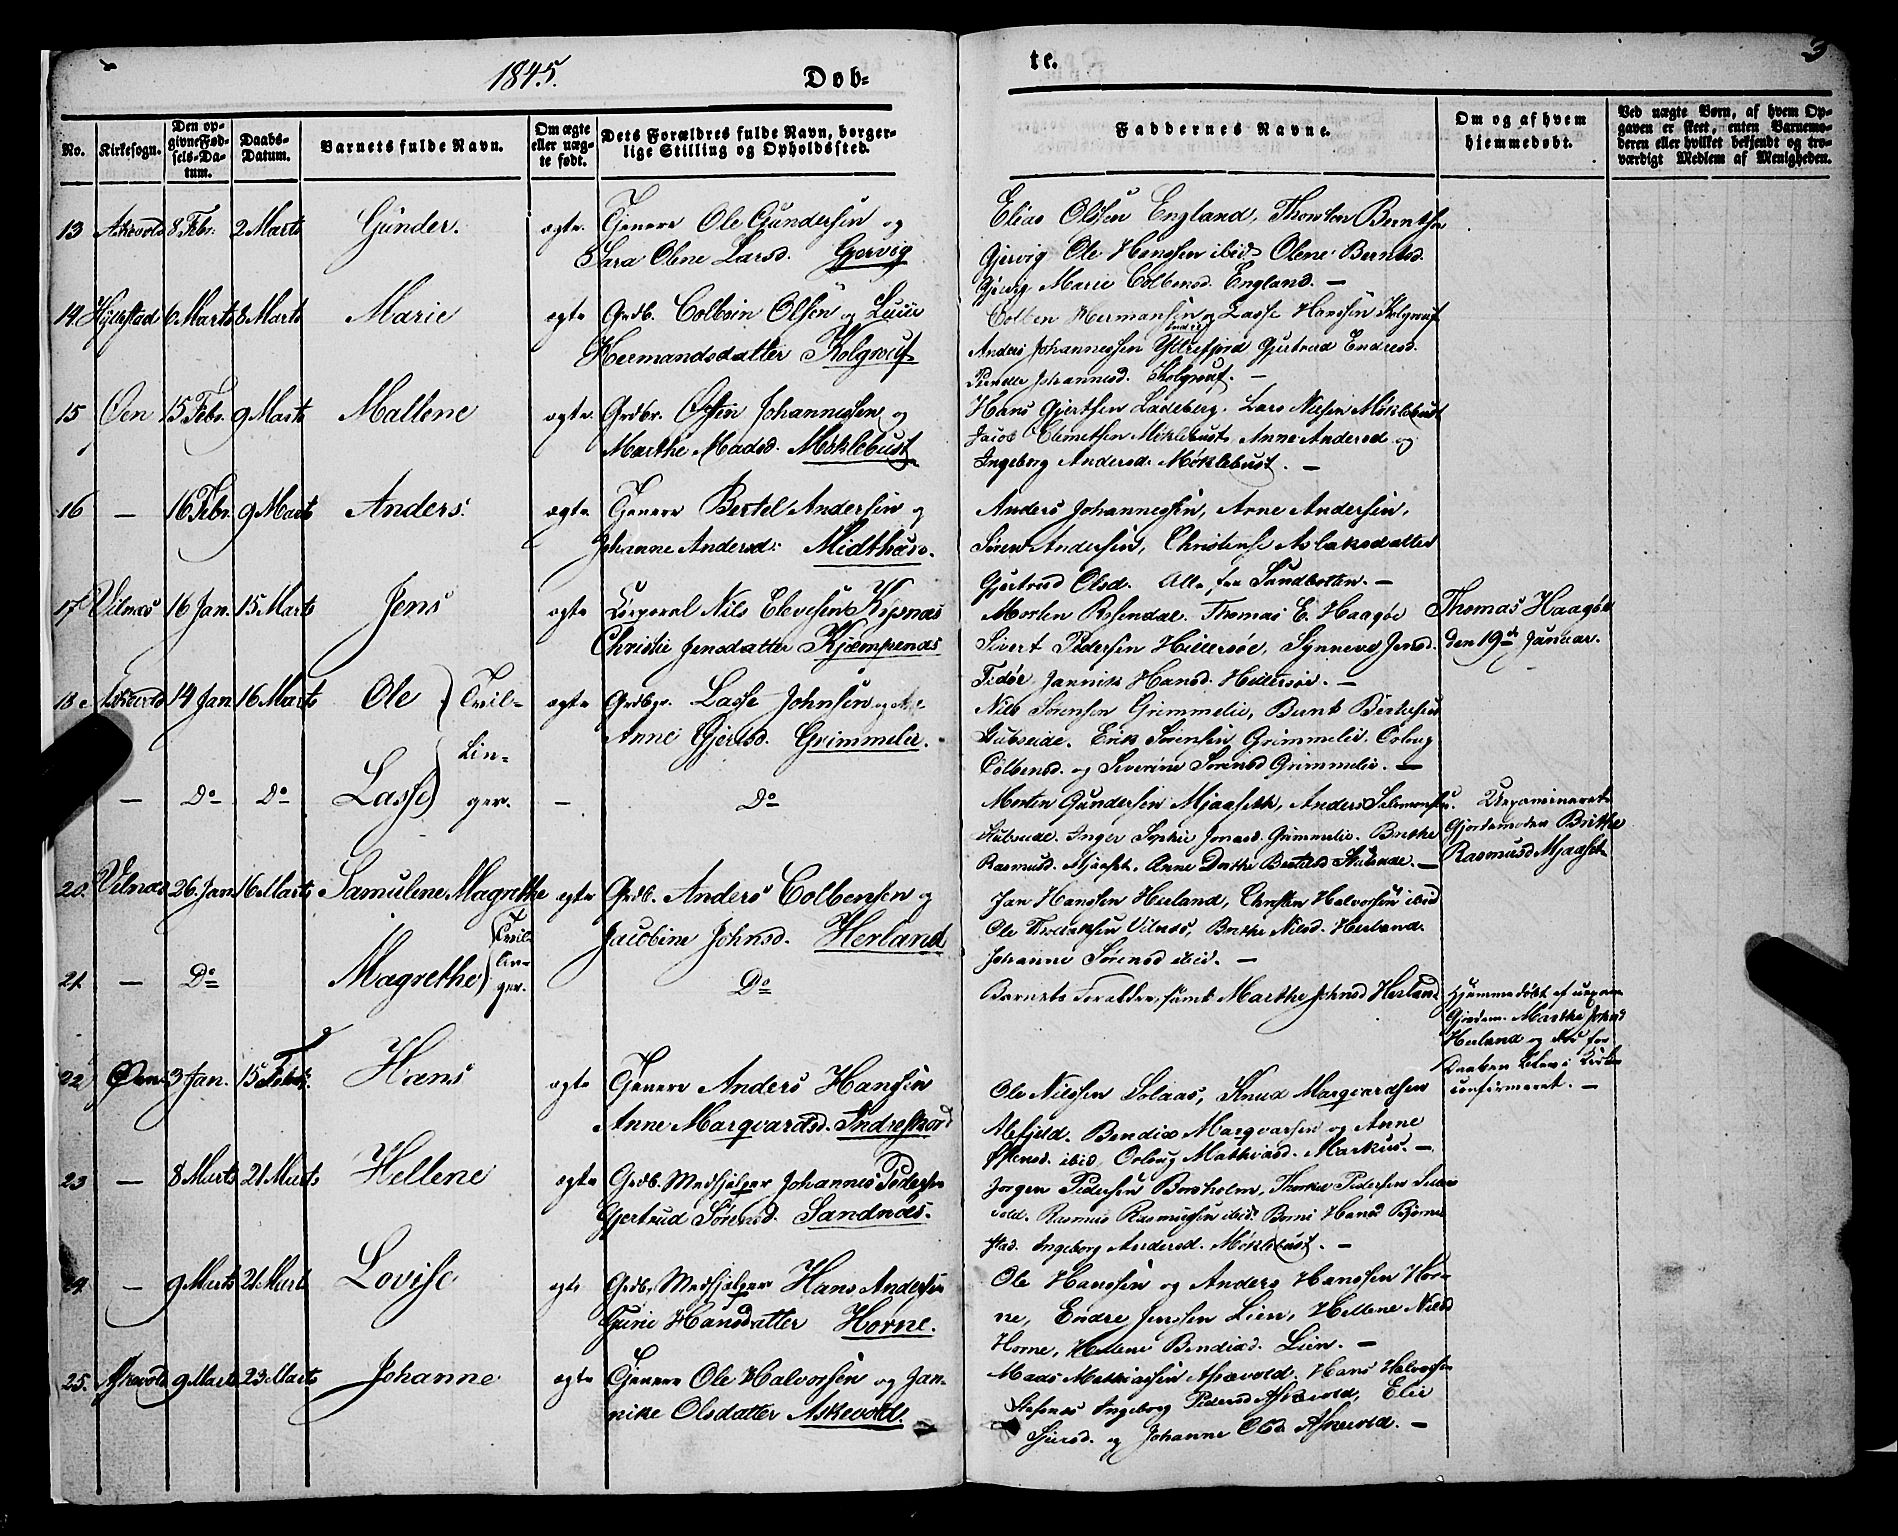 1845.
Døb-
te.
3
No.
Kirkesogn.
Den op-
givne Fød-
sels-Da-
tum.
Daabs-
Datum.
Barnets fulde Navn.
Om ægte
eller uæg-
te født.
Dets Forældres fulde Navn, borger-
lige Stilling og Opholdssted.
Faddernes Navne.
Om og af hvem
hjemmedøbt.
Ved uægte Børn, af hvem Op-
gaven er skeet, enten Barnemo-
deren eller hvilket bekjendt og tro-
værdigt Medlem af Menigheden.
13 Askevold 8 Febr. 2 Marts Gunder. ægte. Tjenere Ole Gundersen og
Sara Olene Larsd. Gjervig
Elias Olssen England, Berntsen
Gjervig Ole Hanssen ibid Olene Berntsd.
Gjervig Marie Colbensd. England. —
14. Hyllestad 6 Marts 8 Marts Marie ægte Grdb. Colbein Olsen og
Hermandsdatter Kolgrouf
Colben Hermansen og Lasse Hanssen Kolgrouf
Anders Johannessen Ytrefjord Gjertrud Endresd.
Johannesd. Kolgrouf. —
15 Øen 15 Febr. 9 Marts Mallene ægte Grdbr. Østen Johannessen og
Marthe Madsd. Møklebust
Hans Gjertsen Ladeberg. Lars Nilsen Møklebust
Jacob Clemetsen Møklebust, Anne Andersd og
Ingeborg Andersd. Møklebust. —
16 — 16 Febr. 9 Marts Anders. ægte Tjenere Bertel Andersen og
Johanne Andersd. Midthus.
Anders Johannessen, Arne Andersen,
Søren Andersen, Christense Aslaksdatter
Gjertrud Olsd. Alle fra Sandbotten. —
17 Vilnæs 16 Jan. 15 Marts Jens ægte Corporal Nils Elevesen
Christie Jensdatter Kjempenæs
Morten Rosendal. Thomas E. Haagøe
Sivert Pedersen Hillersøe, Synneve Jensd.
Jannik Hansd. Hillersøe. —
Thomas Haagøe
den 19de Januar.
18 Askevold 14 Jan 16 Marts Ole ægte Grdbr. Lasse Johnsen og
Anne Gjertsd. Grimmelie.
Tvil-
lin-
ger.
Nils Sørensen Grimmelie, Bernt Bertelsen
Stubseide. Erik Sørensen Grimmelie. Orloug
Colbensd. og Severine Sørensd Grimmelie. —
— Do Do Lasse — Do
Morten Gundersen Mjaaseth, Anders Salomonsen
Stubseide. Inger Sophie Jonasd. Grimmelie. Brithe
Rasmusd. Mjaaset. Anne Dorthe Bertelsd Stubseide. —
Uexamineret
Gjordemoder Brithe
Rasmusd Mjaaset
20. Vilnæs 26 Jan 16 Marts Samulene Magrethe ægte Grdb. Anders Colbensen og
Jacobine Johnsd. Herland
Tvil-
lin-
ger.
Jan Hanssen Herland, Christen Halvorsen ibid
Ole Vilnæs, Brithe Nilsd. Herland.
Johanne Sørensd ibid. —
21. — Do Magrethe Do
Barnets Forældre, samt Marthe Johnsd Herland
Hjemmedøbt af uexam.
Gjordem. Marthe Johnsd
Herland og for
Daaben blev i Kirken
confirmeret. —
22 Øen 3 Jan. 15 Febr. Hans ægte Tjenere Anders Hanssen
Anne Marqvardsd. Indrefjord
Ole Nilssen Solaas, Knud Marqvardsen
Bendix Marqvarsen og Anne
ibid, Orloug Mathiasd. Markus. —
23 — 8 Marts 21 Marts Hellene ægte Grdb. Medhjelper Johannes Pedersen
Gjertrud Sørensd. Sandnæs.
Jørgen Pedersen Bonsholm, Thorkel Pedersen
Rasmus Rasmussen ibid. Hansd
Ingeborg Andersd. Møklebust. —
24. — 9 Marts 21 Marts Lovise ægte Grdb. Medhjelper Hans Andersen
Gurie Hansdatter Horne.
Ole Hanssen og Anders Hanssen Hor-
ne, Endre Jenssen Lien, Hellene Nilsd
Horne, Hellene Bendixd. Lien. —
25. Askevold 9 Marts 23 Marts Johanne ægte Tjenere Ole Halvorsen og Jan-
nike Olsdatter Askevold.
Mads Mathiassen Askevold. Hans Halvorsen
Ingeborg Pedersd Askevold, Elie
og Johanne Olsd Askevold. —